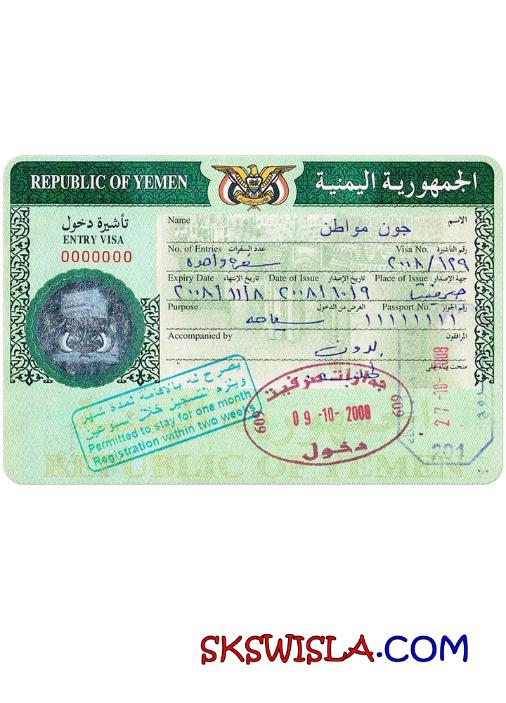 REPUBLIC OF YEMEN
الجمهورية اليمنية
تأشيرة دخول
ENTRY VISA
0000000
Name
الاسم
جون مواطن
No. of Entries
عدد السفرات
Visa No.
رقم التاشيرة
سفرة واحده
٢٠٠٨/١٢٩
Expiry Date
تاريخ الإنتهاء
Date of Issue
تاريخ الإصدار
Place of Issue
جهة الإصدار
٢٠٠٨/١١/٨
٢٠٠٨/١٠/٩
Purpose
الغرض من الدخول
Passport No.
رقم الجواز
سياحه
١١١١١١١١
Accompanied by
المرافقون
بدون
منحت بناء على
يصرح له بالإقامة لمدة شهر
ويلزم التسجيل خلال أسبوعين
Permitted to stay for one month
Registration within two weeks
609
09-10-2008
609
دخول
27-10-2008
201
REPUBLIC OF YEMEN
SKSWISLA.COM